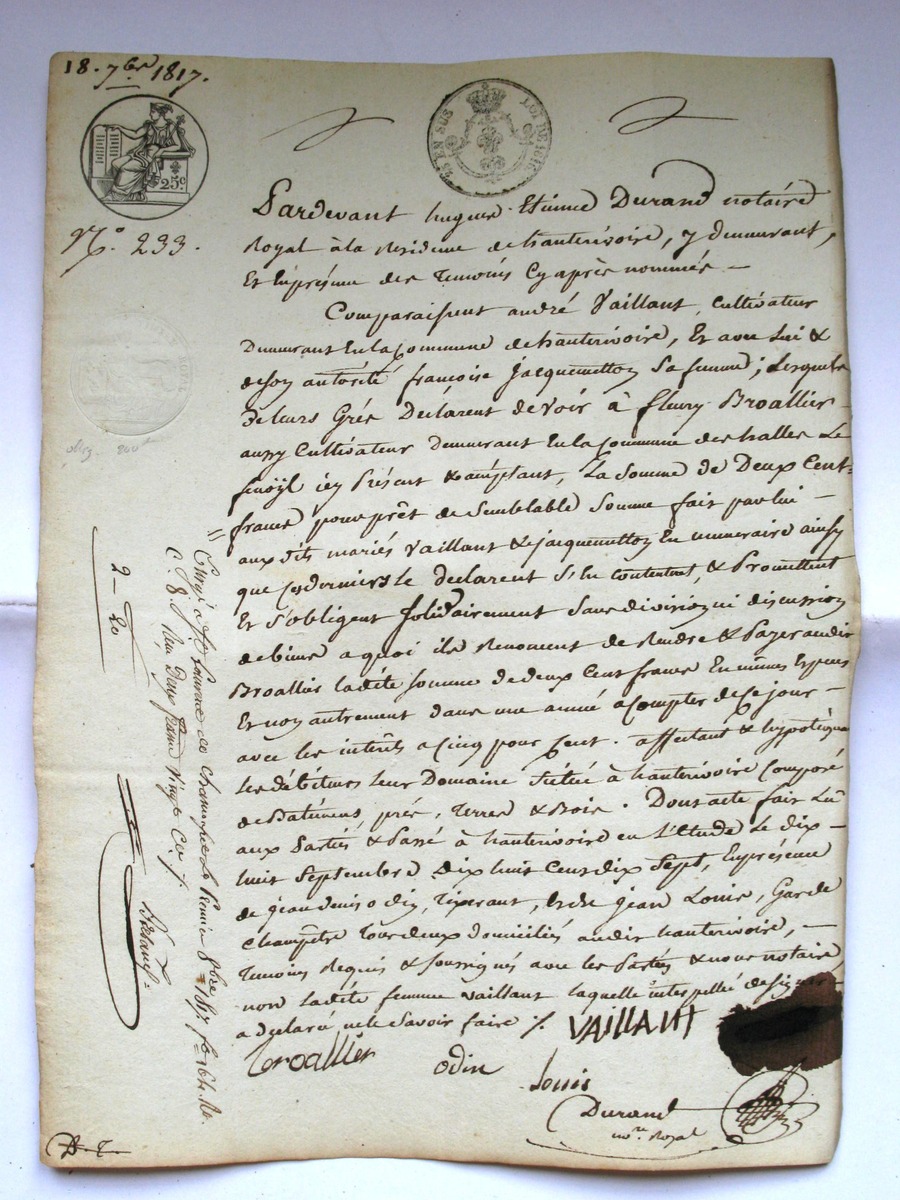 18. 7bre 1817.
25 EN SUS LOI DE 1816
25c
N.o 233.
Pardevant hugues Etienne Durand notaire
Royal à la Residence de hauterivoire, y demeurant,
Et En présence des Temoins Cy après nommés —
Comparaissent andré Vaillant, Cultivateur
Demeurant En la Commune de hauterivoire, Et avec Lui &
de son autorité françoise Jacquemetton Sa femme; Lesquels
de leurs Grés Déclarent devoir à fleury Broallier
aussy Cultivateur demeurant En la Commune des halles Le
fenoÿl icy Présent & acceptant, La Somme de Deux Cent
francs pour prêt de Semblable Somme fait par lui —
aux dits mariés Vaillant & Jacquemetton En numeraire ainsy
que Ces derniers le declarent S'En Contentent, & Promettent
Et S'obligent Solidairement Sans division ni discussion
de biens a quoi ils Renoncent de Rendre & Payer audit
Broallier ladite Somme de deux Cent francs En mêmes Especes
Et non autrement dans une année à Compter de Ce jour —
avec les interêts a Cinq pour Cent. affectant & hypotéquant
les débiteurs leur Domaine Situé à hauterivoire Composé
de Batimens, prés, Terres & Bois. Dont acte fait Lu
aux Parties & Passé à hauterivoire en L'Etude Le dix —
huit Septembre Dix huit Cent dix Sept, En présence
de jean denis odin, Tixerant, & de jean Louis, Garde
Champêtre Tous deux domiciliés audit hauterivoire, —
Temoins Requis & Soussignés avec les Parties & nous notaire
non ladite femme Vaillant laquelle interpellée de Signer
a declaré ne le Savoir faire ./.
VAILLANT
broallier
odin
Louis
Durand
no.re Royal
2 - 20
Laurent
8bre 1817 fo 164 Ro
C. 8 Reçu Deux francs Vingt
D. T.